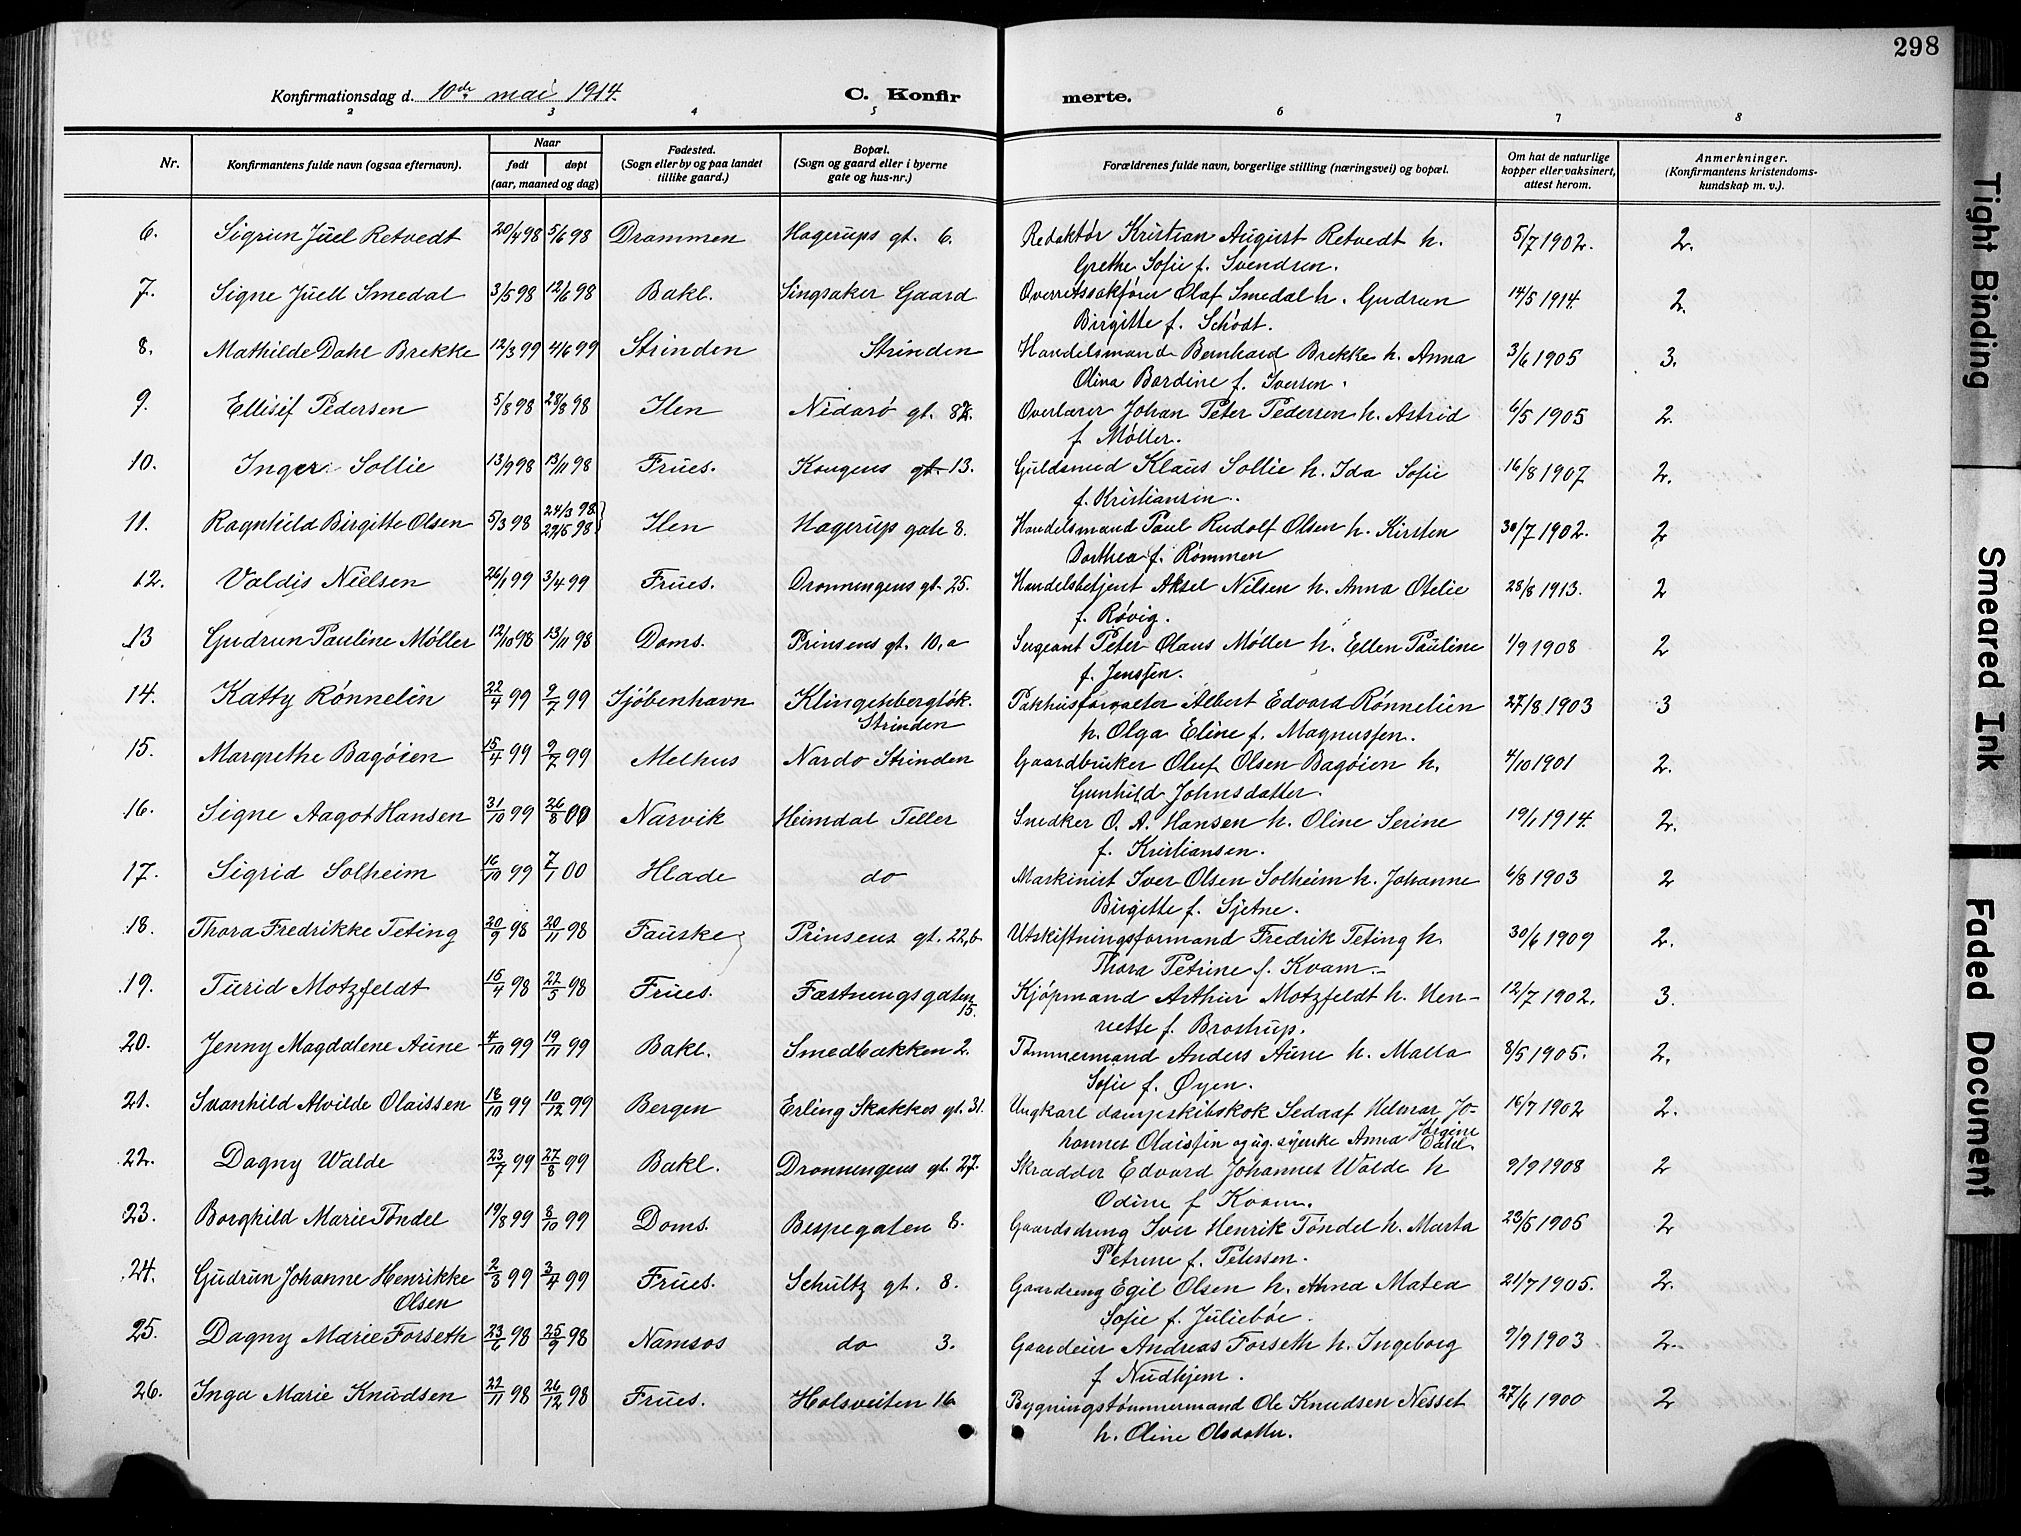 298
Konfirmationsdag d. 10de mai 1914.
C. Konfirmerte.
2 3 4 5 6 7 8
Nr. Konfirmantens fulde navn (ogsaa efternavn). Naar født døpt (aar, maaned og dag) Fødested. (Sogn eller by og paa landet tillike gaard.) Bopæl. (Sogn og gaard eller i byerne gate og hus-nr.) Forældrenes fulde navn, borgerlige stilling (næringsvei) og bopæl. Om hat de naturlige kopper eller vaksinert, attest herom. Anmerkninger. (Konfirmantens kristendomskundskap m. v.).
6. Sigrun Juel Retvedt 20/4 98 5/6 98 Drammen Hagerups gt. 6. Redaktør Kristian August Retvedt h. 5/7 1902. 2.
Grethe Sofie f. Svendsen.
7. Signe Juell Smedal 3/5 98 12/6 98 Bakl. Singsaker Gaard Overretssakfører Olaf Smedal h. Gudrun 14/5 1914. 2.
Birgitte f. Schödt.
8. Mathilde Dahl Brekke 12/3 99 4/6 99 Strinden Strinden Handelsmand Bernhard Brekke h. Anna 3/6 1905 3.
Oliva Bardine f. Iversen.
9. Ellisif Pedersen 5/8 98 28/8 98 Ilen Nidarø gt. Overlærer Johan Peter Pedersen h. Astrid 6/5 1905 2.
f. Møller.
10. Inger Sollie 13/9 98 13/11 98 Frues. Kongens gt. 13. Guldsmed Klaus Sollie h. Ida Sofie 16/8 1907 2.
f. Kristiansen.
11. Ragnhild Birgitte Olsen 5/3 98 24/3 98. 29/5 98 Ilen Hagerup gate 8. Handelsmand Paul Rudolf Olsen h. Kirsten 30/7 1902. 2
Dorthea f. Rømmen
12. Valdis Nielsen 26/1 99 3/4 99 Frues. Dronningens gt. 25. Handelsbetjent Aksel Nilsen h. Anna Otelie 28/8 1913. 2
f. Røvig.
13 Gudrun Pauline Møller 12/10 98 13/11 98 Doms. Prinsens gt. 10,a Sergeant Peter Olaus Møller h. Ellen Pauline 1/9 1908 2
f. Jenssen.
14. Katty Rønnelin 22/4 99 9/7 99 Kjøbenhavn Klingenbergløk. Pakhusforvalter Albert Edvard Rønnelien 27/8 1903 3
Strinden h. Olga Eline f. Magnussen.
15. Margrethe Bagøien 15/4 99 9/7 99 Melhus Nardo Strinden Gaardbruker Oluf Olsen Bagøien h. 4/10 1901 2.
Gunhild Johnsdatter.
16. Signe Aagot Hansen 31/10 99 26/8 00 Narvik Heimdal Tiller Snedker O. A. Hansen h. Oline Serine 19/1 1914. 2.
f. Kristiansen.
17. Sigrid Solheim 16/10 99 7/1 00 Hlade do Maskinist Iver Olsen Solheim h. Johanne 6/8 1903 2
Birgitte f. Sjetne.
18. Thora Fredrikke Teting 20/9 98 20/11 98 Fauske Prinsens gt. 22,b Utskiftningsformand Fredrik Teting h. 30/6 1909 2.
Thora Petrine f. Kvam.
19. Turid Motzfeldt 15/4 98 22/5 98 Frues. Fæstningsgaten 15. Kjøpmand Arthur Motzfeldt h. Hen- 12/7 1902. 3.
riette f. Brostrup.
20. Jenny Magdalene Aune 4/10 99 19/11 99 Bakl. Smedbakken 2. Tømmermand Anders Aune h. Malla 8/5 1905. 2.
Sofie f. Øyen.
21. Svanhild Alvilde Olaissen 18/10 99 10/12 99 Bergen Erling Skakkes gt. 31. Ungkarl dampskibskok Helmar Jo- 16/7 1902 2.
hannes Olaissen og ug. syerske Anna
22. Dagny Walde 23/7 99 27/8 99 Bakl. Dronningens gt. 27. Skrædder Edvard Johannes Walde h 9/9 1908 2
Odine f Kvam.
23. Borghild Marie Tøndel 19/8 99 8/10 99 Doms. Bispegaten 8. Gaardsdreng Iver Henrik Tøndel h. Marta 23/5 1905 2
Petrine f. Petersen.
24. Gudrun Johanne Henrikke 2/3 99 3/4 99 Frues. Schultz gt. 8. Gaardreng Egil Olsen h. Anna Matea 21/7 1905. 2.
Olsen Sofie f. Juliebøe.
25. Dagny Marie Forseth 23/6 98 25/9 98 Namsos do 3. Gaardeier Andreas Forseth h. Ingeborg 9/9 1903 2.
f Nudhjem.
26. Inga Marie Knudsen 22/11 98 26/12 98 Frues. Holsveiten 16 Bygningstømmermand Ole Knudsen Nesset 27/6 1900 2
h. Oline Olsdatter.
Tight Binding
Smeared Ink
Faded Document